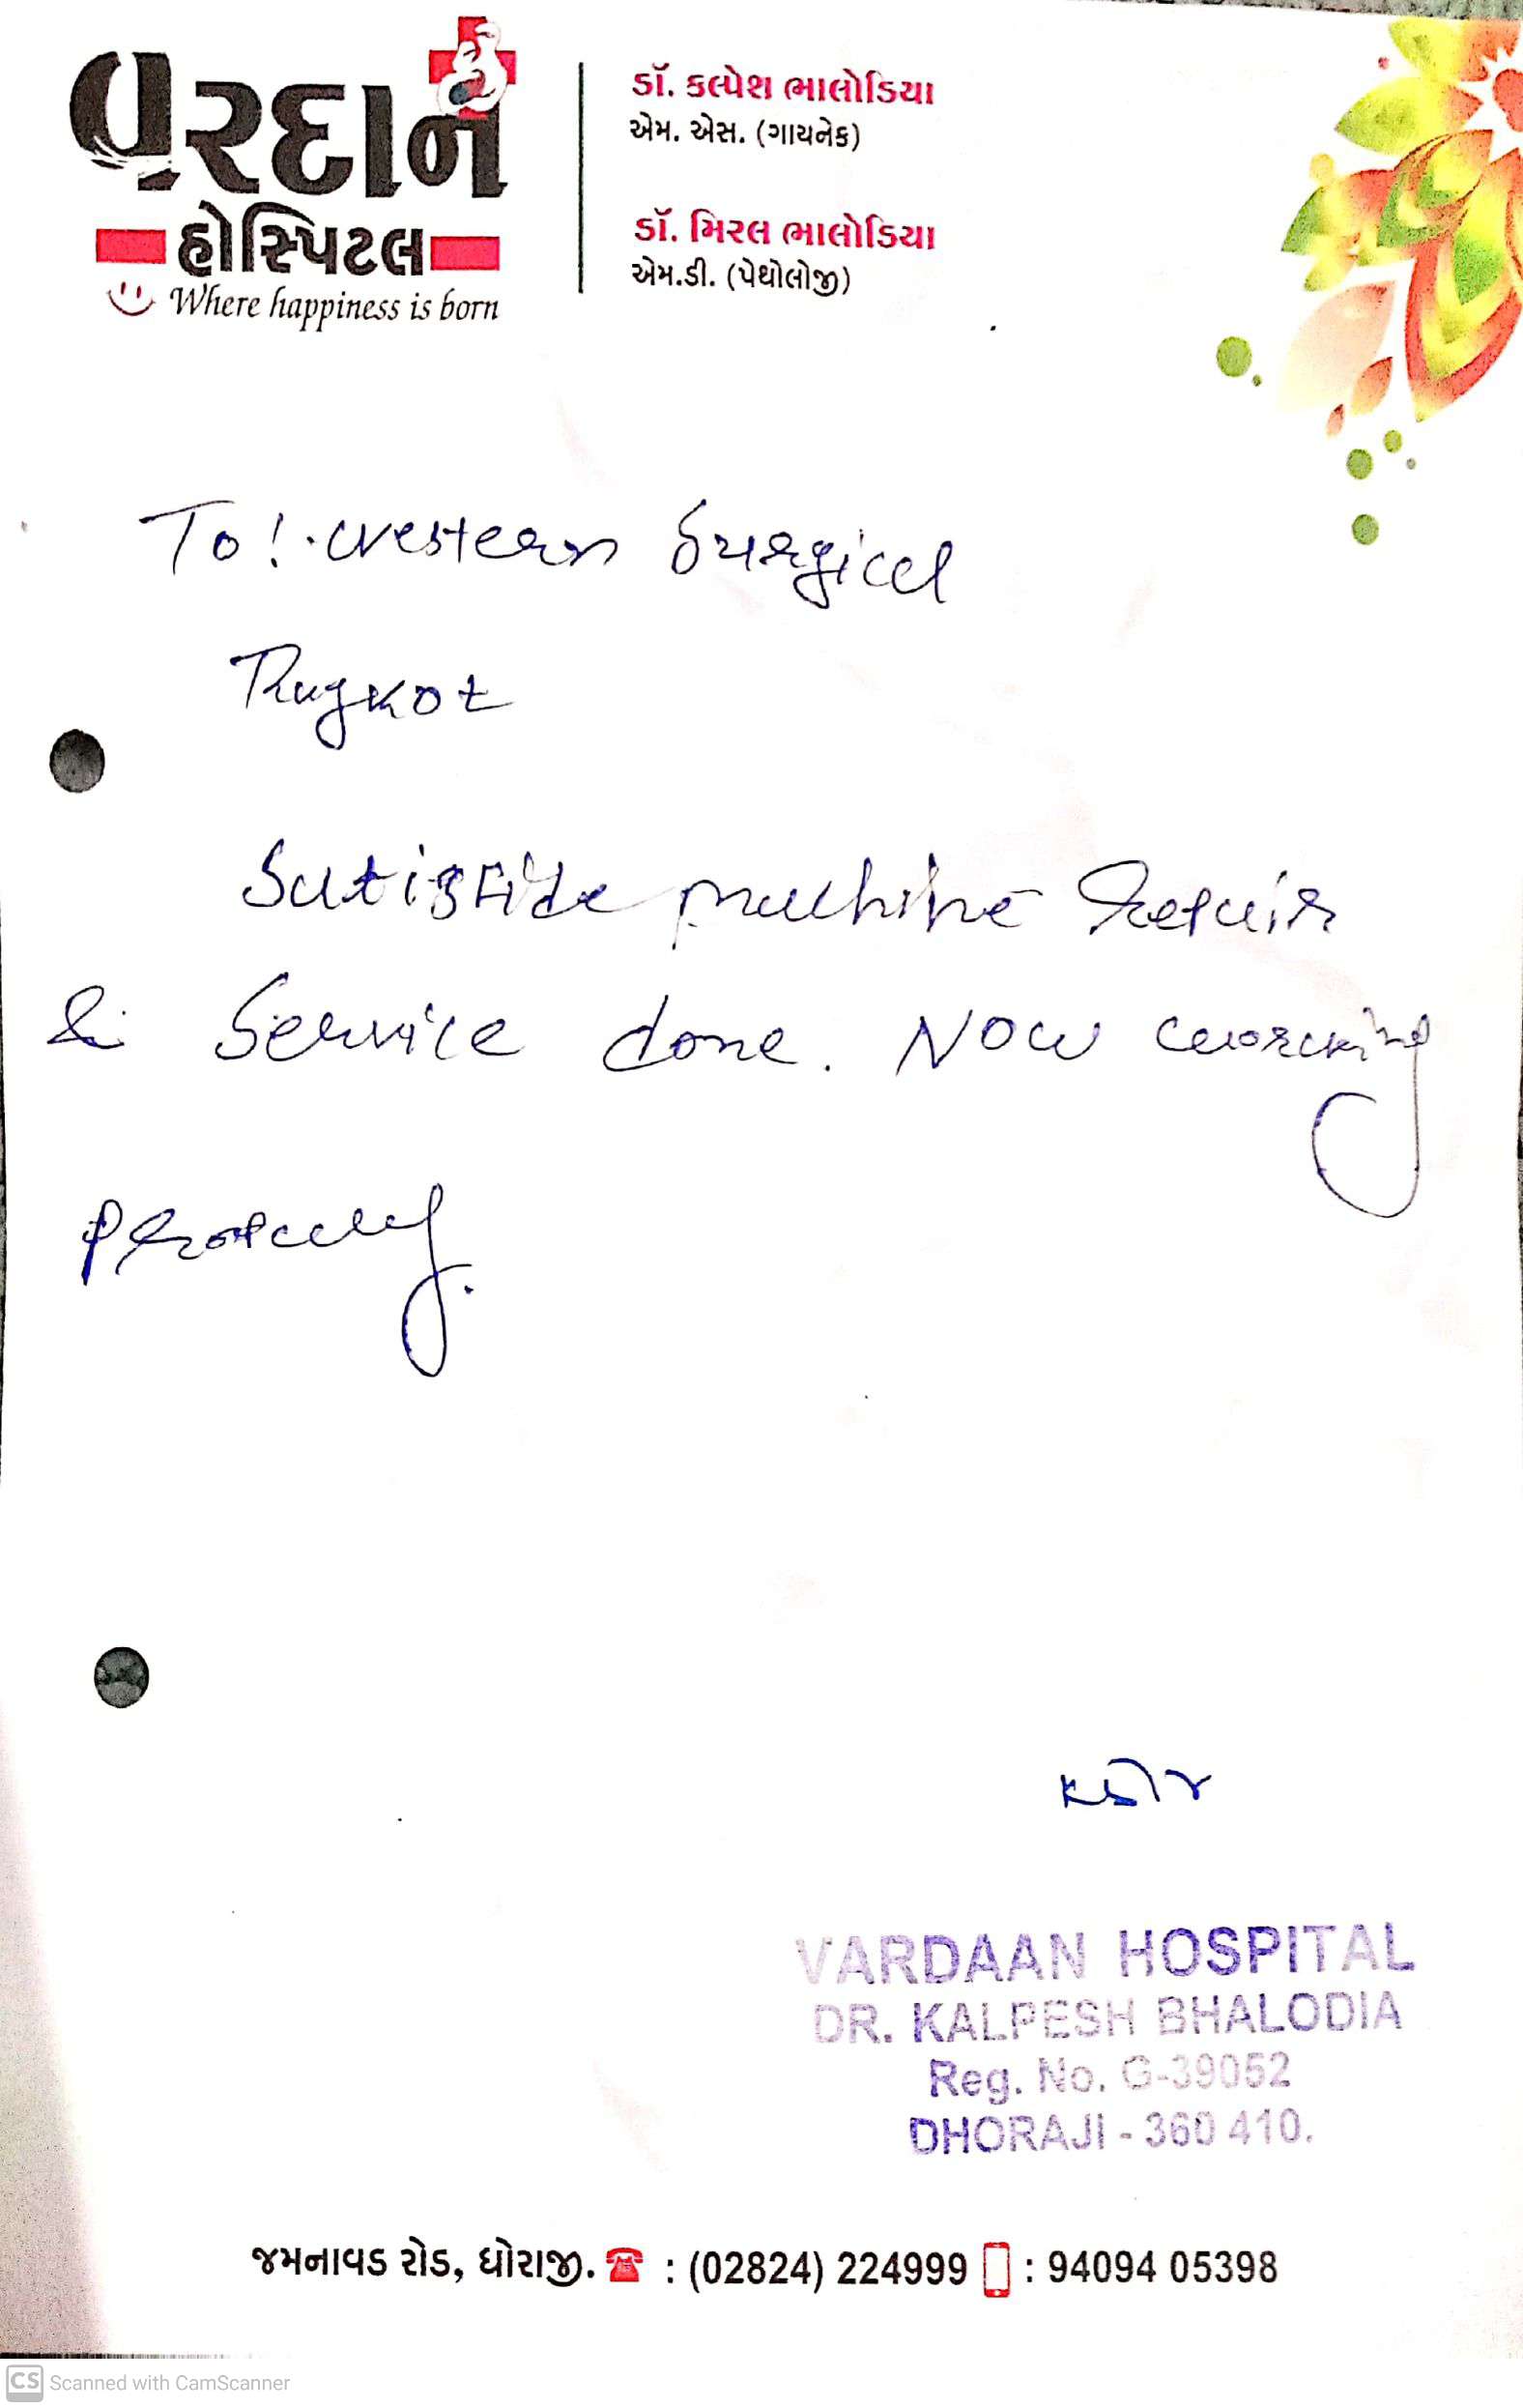 વરદાન
હોસ્પિટલ
Where happiness is born
ડૉ. કલ્પેશ ભાલોડિયા
એમ. એસ. (ગાયનેક)
ડૉ. મિરલ ભાલોડિયા
એમ.ડી. (પેથોલોજી)
To! Western Surgical
Rajkot
machine Repair
& Service done. Now working
properly.
VARDAAN HOSPITAL
DR. KALPESH BHALODIA
Reg. No. G-39052
DHORAJI - 360 410.
જમનાવડ રોડ, ધોરાજી. : (02824) 224999 : 94094 05398
CS Scanned with CamScanner